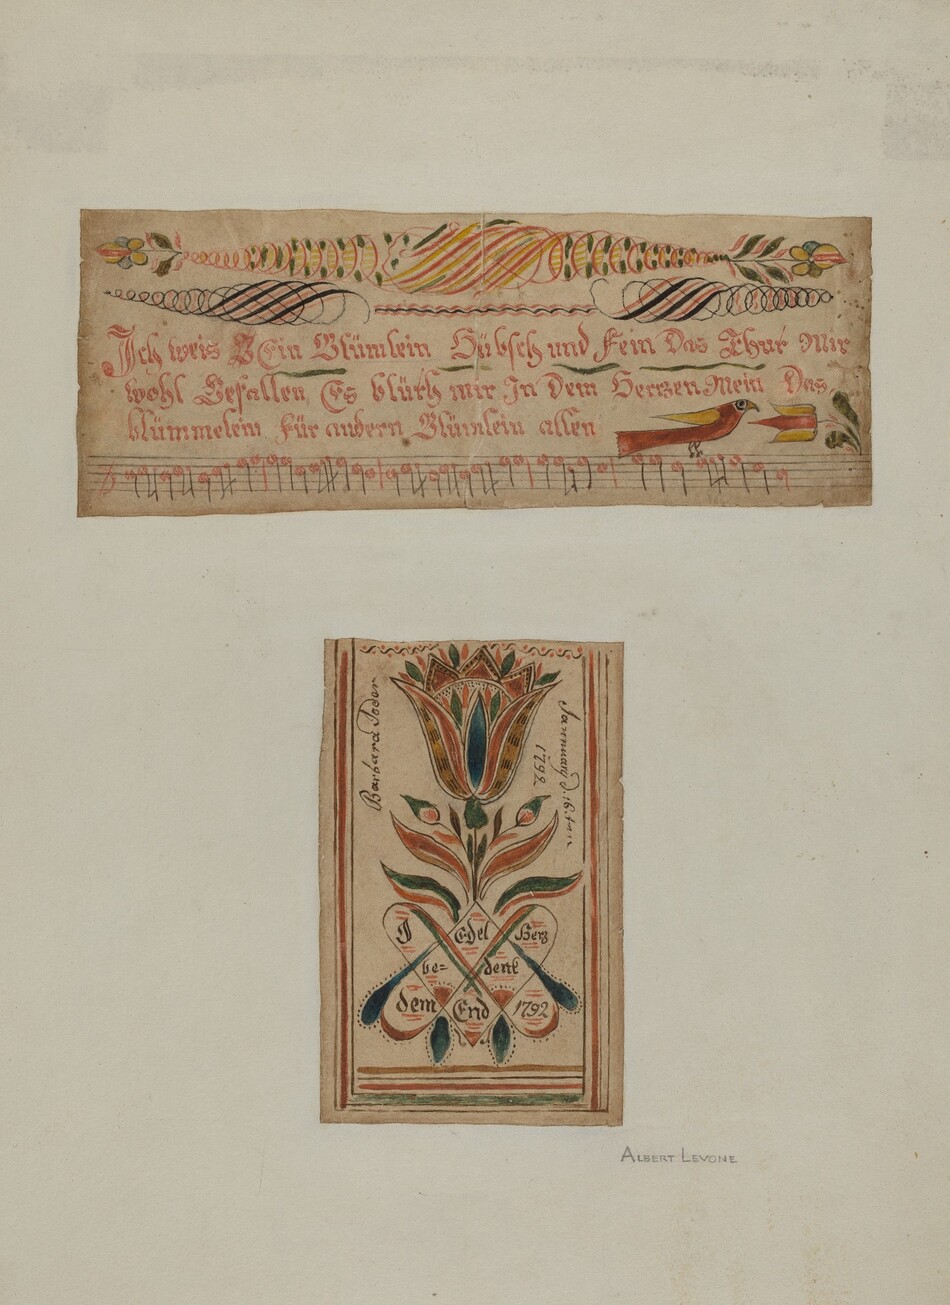 Ich weis Ein Blümlein Hübsch und Fein Das Thut Mir
wohl Gefallen Es blüth mir In Dem Hertzen Mein Das
blümmelein Für andern Blümlein allen
Barbara Yoder
Januarÿ
1792
I Edel Herz
be= denk
dem End 1792
ALBERT LEVONE